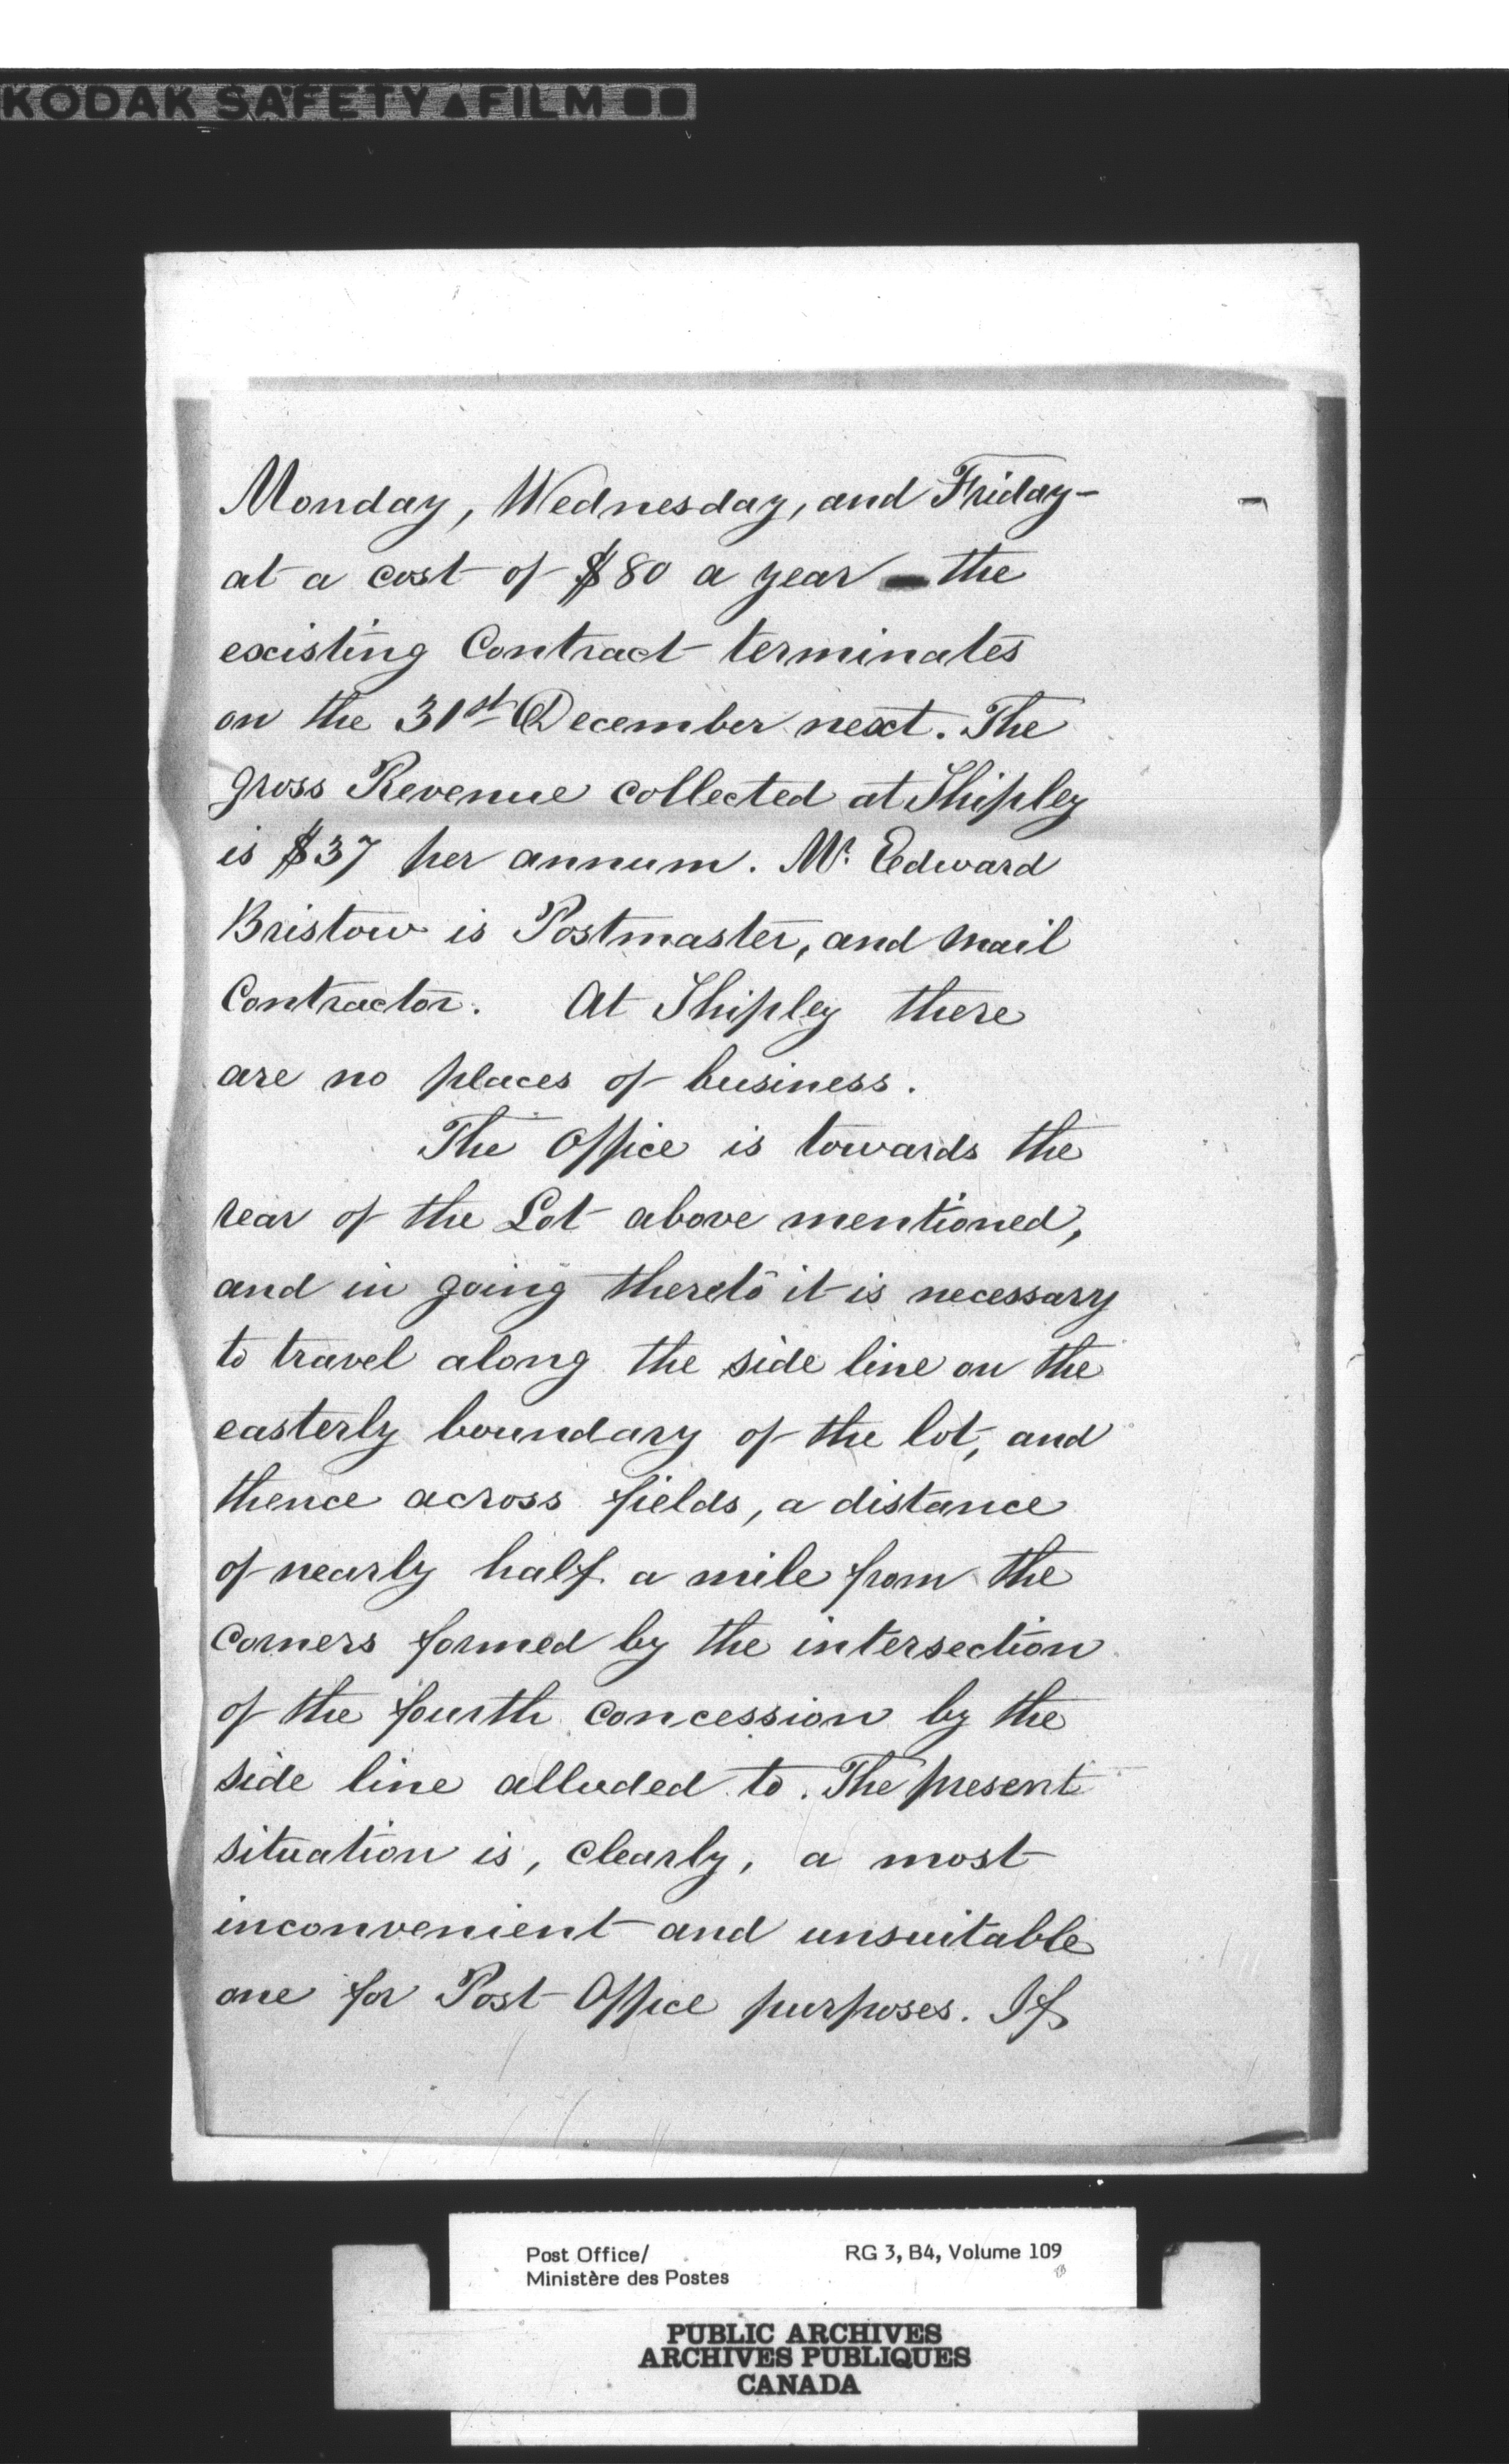 KODAK SAFETY FILM
Monday, Wednesday, and Friday-
at a cost of $80 a year — the
existing Contract terminates
on the 31st December next. The
gross Revenue collected at Shipley
is $37 per annum. Mr. Edward
Bristow is Postmaster, and Mail
Contractor. At Shipley there
are no places of business.
The Office is towards the
rear of the Lot above mentioned,
and in going thereto it is necessary
to travel along the side line on the
easterly boundary of the lot, and
thence across fields, a distance
of nearly half a mile from the
corners formed by the intersection
of the fourth concession by the
side line alluded to. The present
situation is, clearly, a most
inconvenient and unsuitable
one for Post Office purposes. If
Post Office/ RG 3, B4, Volume 109
Ministère des Postes
PUBLIC ARCHIVES
ARCHIVES PUBLIQUES
CANADA